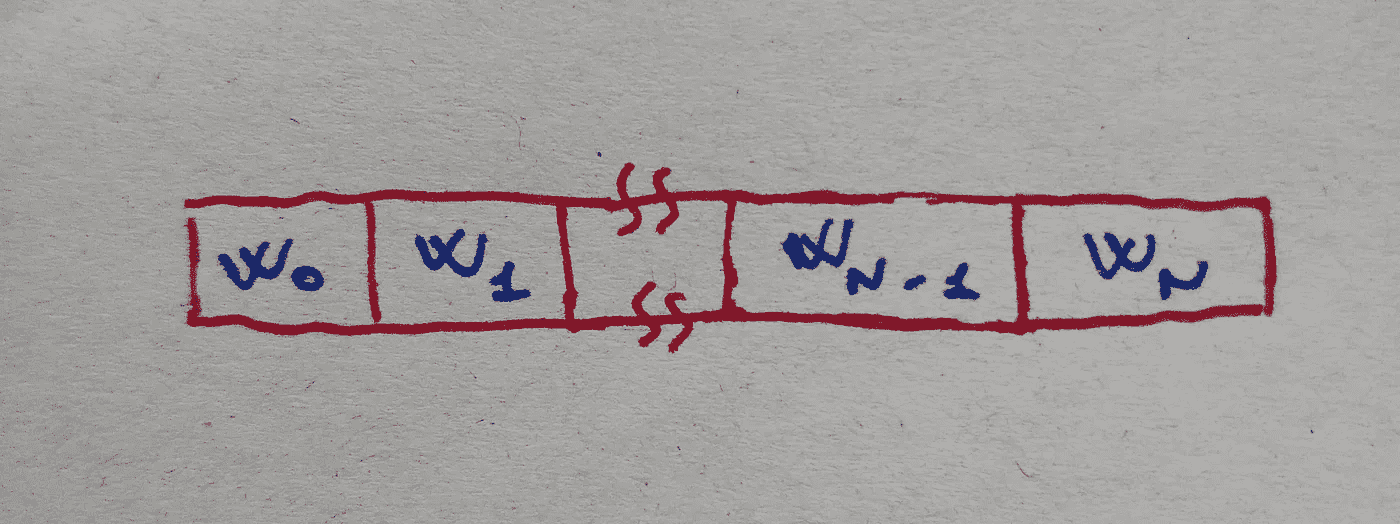 W₀ W₁ W_N-1 W_N